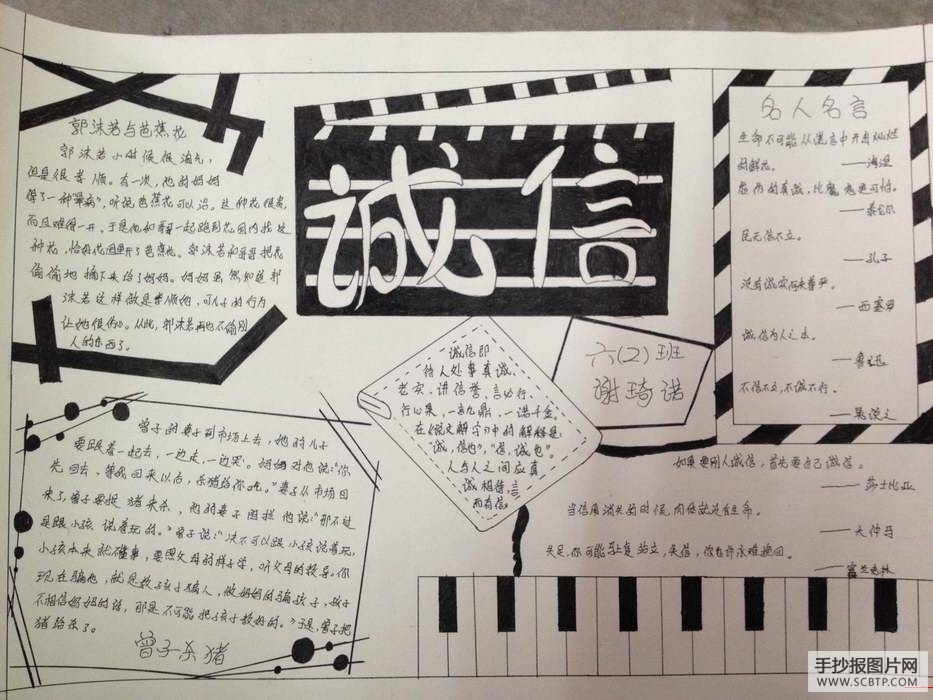 郭沫若与芭蕉花
郭沫若小时候很淘气,
但是很孝顺。有一次,他的妈妈
得了一种“晕病”,听说芭蕉花可以治。这种花很贵,
而且难得一开,于是他和哥哥一起跑到花园内找这
种花,恰好花园里开了芭蕉花。郭沫若和哥哥把花
偷偷地摘下来给了妈妈。妈妈虽然知道郭
沫若这样做是孝顺她,可儿子的行为
让她很伤心。从此,郭沫若再也不偷别
人的东西了。
诚信
名人名言
生命不可能从谎言中开出灿烂
的鲜花。
——海涅
虚伪的真诚,比魔鬼更可怕。
——泰戈尔
民无信不立。
——孔子
没有诚实何来尊严。
——西塞罗
诚信为人之本。
——鲁迅
不信不立,不诚不行。
六(2)班
谢琦诺
诚信即
待人处事真诚、
老实、讲信誉、言必行、
行必果,一言九鼎,一诺千金。
在《说文解字》中的解释是:
“诚,信也”,“信,诚也”。
人与人之间应真
诚相待,言
而有信。
曾子的妻子到市场上去,她的儿子
要跟着一起去,一边走,一边哭。妈妈对他说:“你
先回去,等我回来以后,杀猪给你吃。”妻子从市场回
来了,曾子要捉猪来杀,他的妻子阻拦他说:“那不过
是跟小孩说着玩的。”曾子说:“决不可以跟小孩说着玩。
小孩本来就不懂事,要照父母的样子学,听父母的教导。你
现在骗他,就是教孩子骗人,做妈妈的骗孩子,孩子
不相信妈妈的话,那是不可能把孩子教好的。”于是,曾子把
猪给杀了。
曾子杀猪
如果要别人诚信,首先要自己诚信。
——莎士比亚
当信用消失的时候,肉体就没有生命。
——大仲马
失足,你可能马上复站立,失信,你也许永难挽回。
——富兰克林
手抄报图片网
WWW.SCBTP.COM